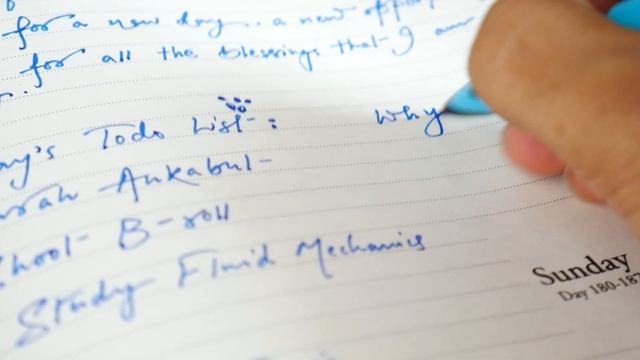 for a new day.. a new
for all the blessings that I am
Todo List:
Why
Ankabut
B-roll
Study Fluid Mechanics
Sunday
Day 180-187